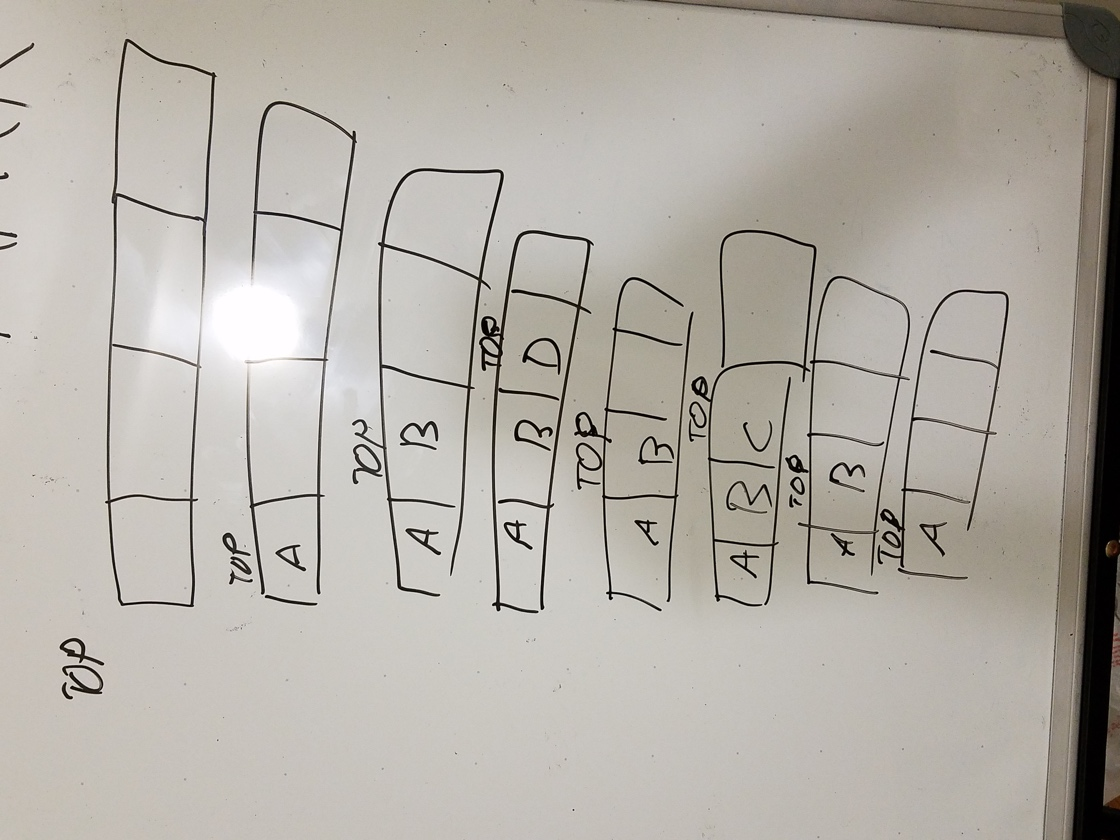 TOP
TOP
A
TOP
A B
TOP
A B D
TOP
A B
TOP
A B C
TOP
A B
TOP
A